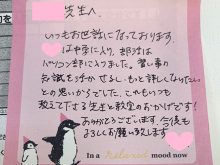 先生へ
いつもお世話になっております
はやまに入り、部活は
パソコン部に入りました。習い事の
お試しをきかせろし、もっと詳しくなりたい
との思いからでした。これもいつも
教えて下さる先生と教室のおかげです!
ありがとうございます。今後も
よろしくお願い致します
In a relaxed mood now